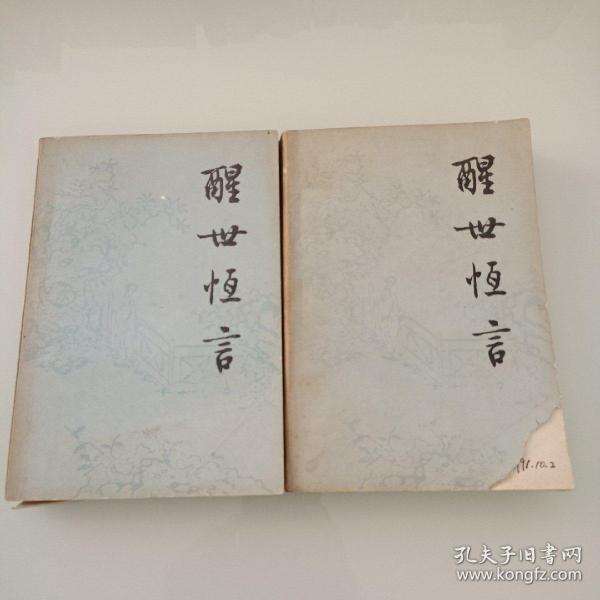 醒世恆言
醒世恆言
191.10.2
孔夫子旧書网
www.kongfz.com